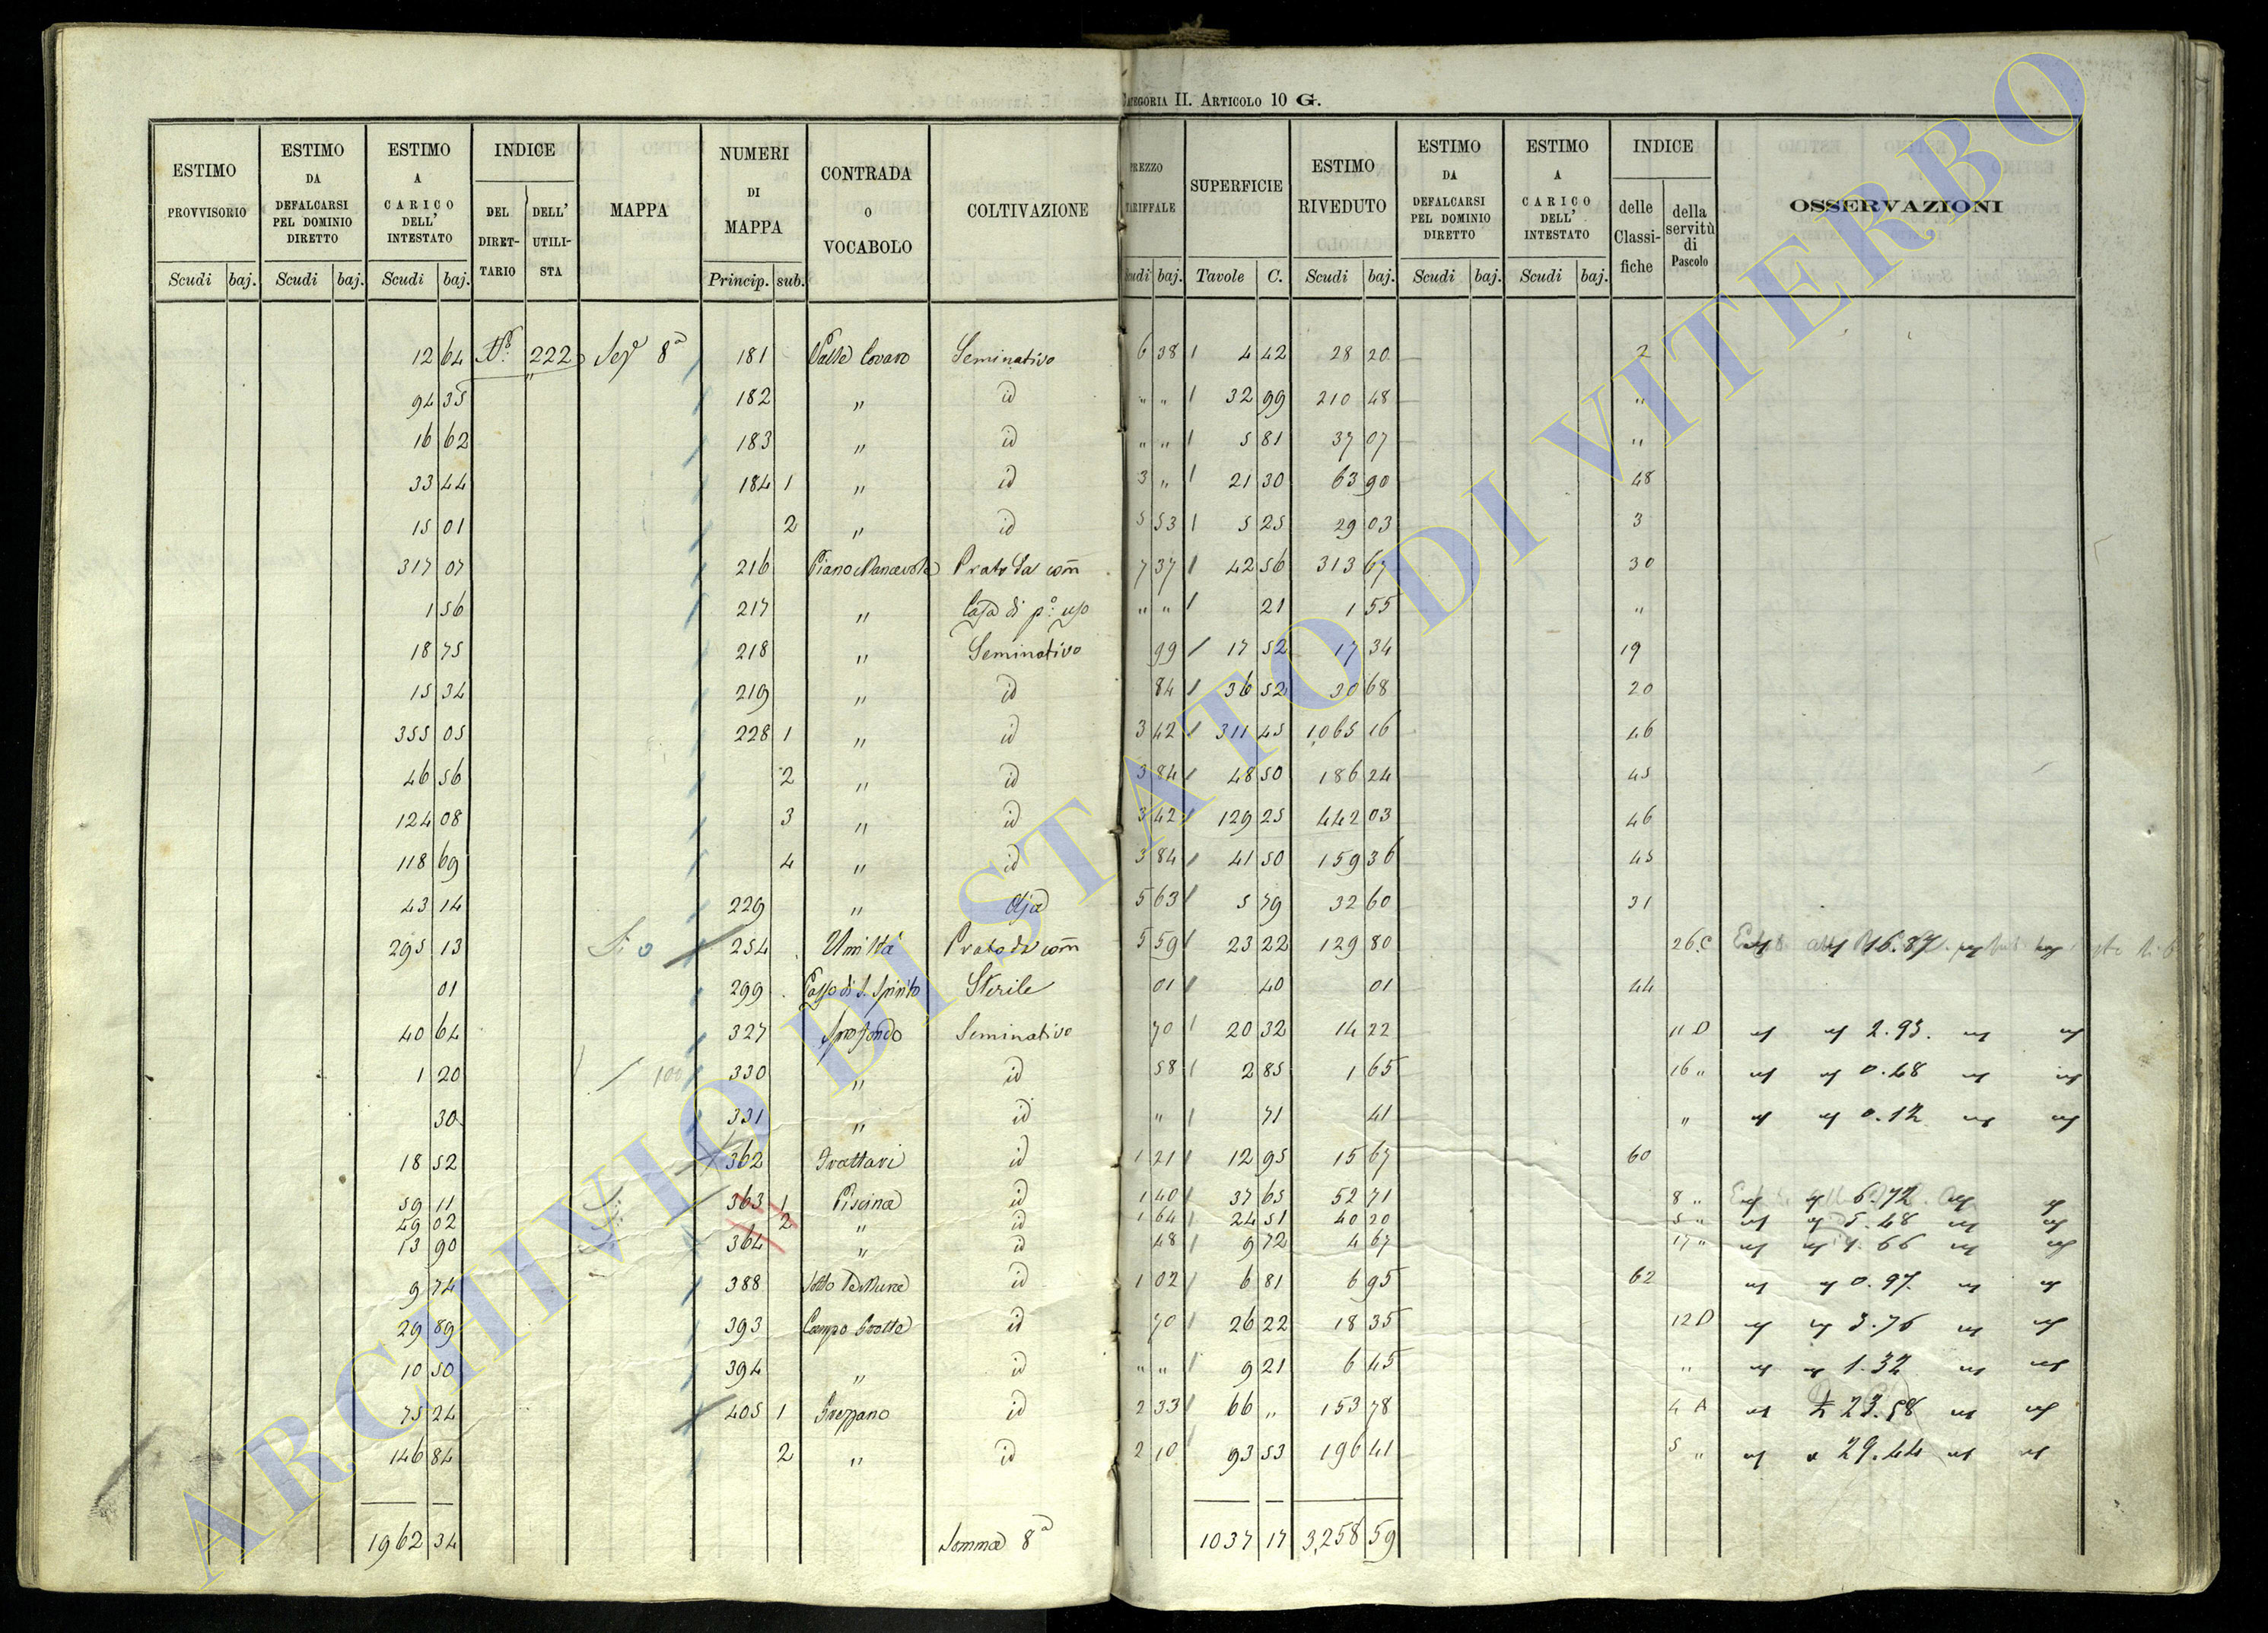 CATEGORIA II. ARTICOLO 10 G.
ESTIMO PROVVISORIO Scudi baj. ESTIMO DA DEFALCARSI PEL DOMINIO DIRETTO Scudi baj. ESTIMO A CARICO DELL' INTESTATO Scudi baj. INDICE DEL DIRETTARIO DELL' UTILISTA MAPPA NUMERI DI MAPPA Princip. sub. CONTRADA O VOCABOLO COLTIVAZIONE PREZZO TARIFFALE Scudi baj. SUPERFICIE Tavole C. ESTIMO RIVEDUTO Scudi baj. ESTIMO DA DEFALCARSI PEL DOMINIO DIRETTO Scudi baj. ESTIMO A CARICO DELL' INTESTATO Scudi baj. INDICE delle Classifiche della servitù di Pascolo OSSERVAZIONI
12 64 222 8ª 181 Valle Seminativo 6 38 4 42 28 20 2
94 35 182 " id " " 32 99 210 48 "
16 62 183 " id " " 5 81 37 07 "
33 44 184 1 " id 3 " 21 30 63 90 48
15 01 2 " id 5 53 5 25 29 03 3
317 07 216 Piano Prato da com 7 37 42 56 313 67 30
1 56 217 " Casa di po: uso " " 21 1 55 "
18 75 218 " Seminativo 99 17 52 17 34 19
15 34 219 " id 84 36 52 30 68 20
355 05 228 1 " id 3 42 311 45 1065 16 46
46 56 2 " id 3 84 48 50 186 24 45
124 08 3 " id 3 42 129 25 442 03 46
118 69 4 " id 3 84 41 50 159 36 45
43 14 229 " Aja 5 63 5 79 32 60 31
295 13 254 Umiltà Prato da com 5 59 23 22 129 80 26 C 16.87
01 299 Passo di S. Spirito Sterile 01 40 01 44
40 64 327 Sprofondo Seminativo 70 20 32 14 22 11 D 2.93.
1 20 100 330 " id 58 2 85 1 65 16 " 0.48
30 331 " id " 71 41 " 0.12
18 52 362 Trattari id 1 21 12 95 15 67 60
59 11 363 1 Piscina id 1 40 37 65 52 71 8 " 6.72
49 02 2 " id 1 64 24 51 40 20 5 " 5.48
13 90 364 " id 48 9 72 4 67 17 "
9 74 388 Sotto le Mura id 1 02 6 81 6 95 62 0.97.
29 89 393 Campo Grotte id 70 26 22 18 35 12 D 3.76
10 50 394 " id " " 9 21 6 45 " 1.32
75 24 405 1 id 2 33 66 " 153 78 4 A 23.58
146 84 2 " id 2 10 93 53 196 41 5 " 29.44
1962 34 Somma 8ª 1037 17 3,258 59
ARCHIVIO DI STATO DI VITERBO